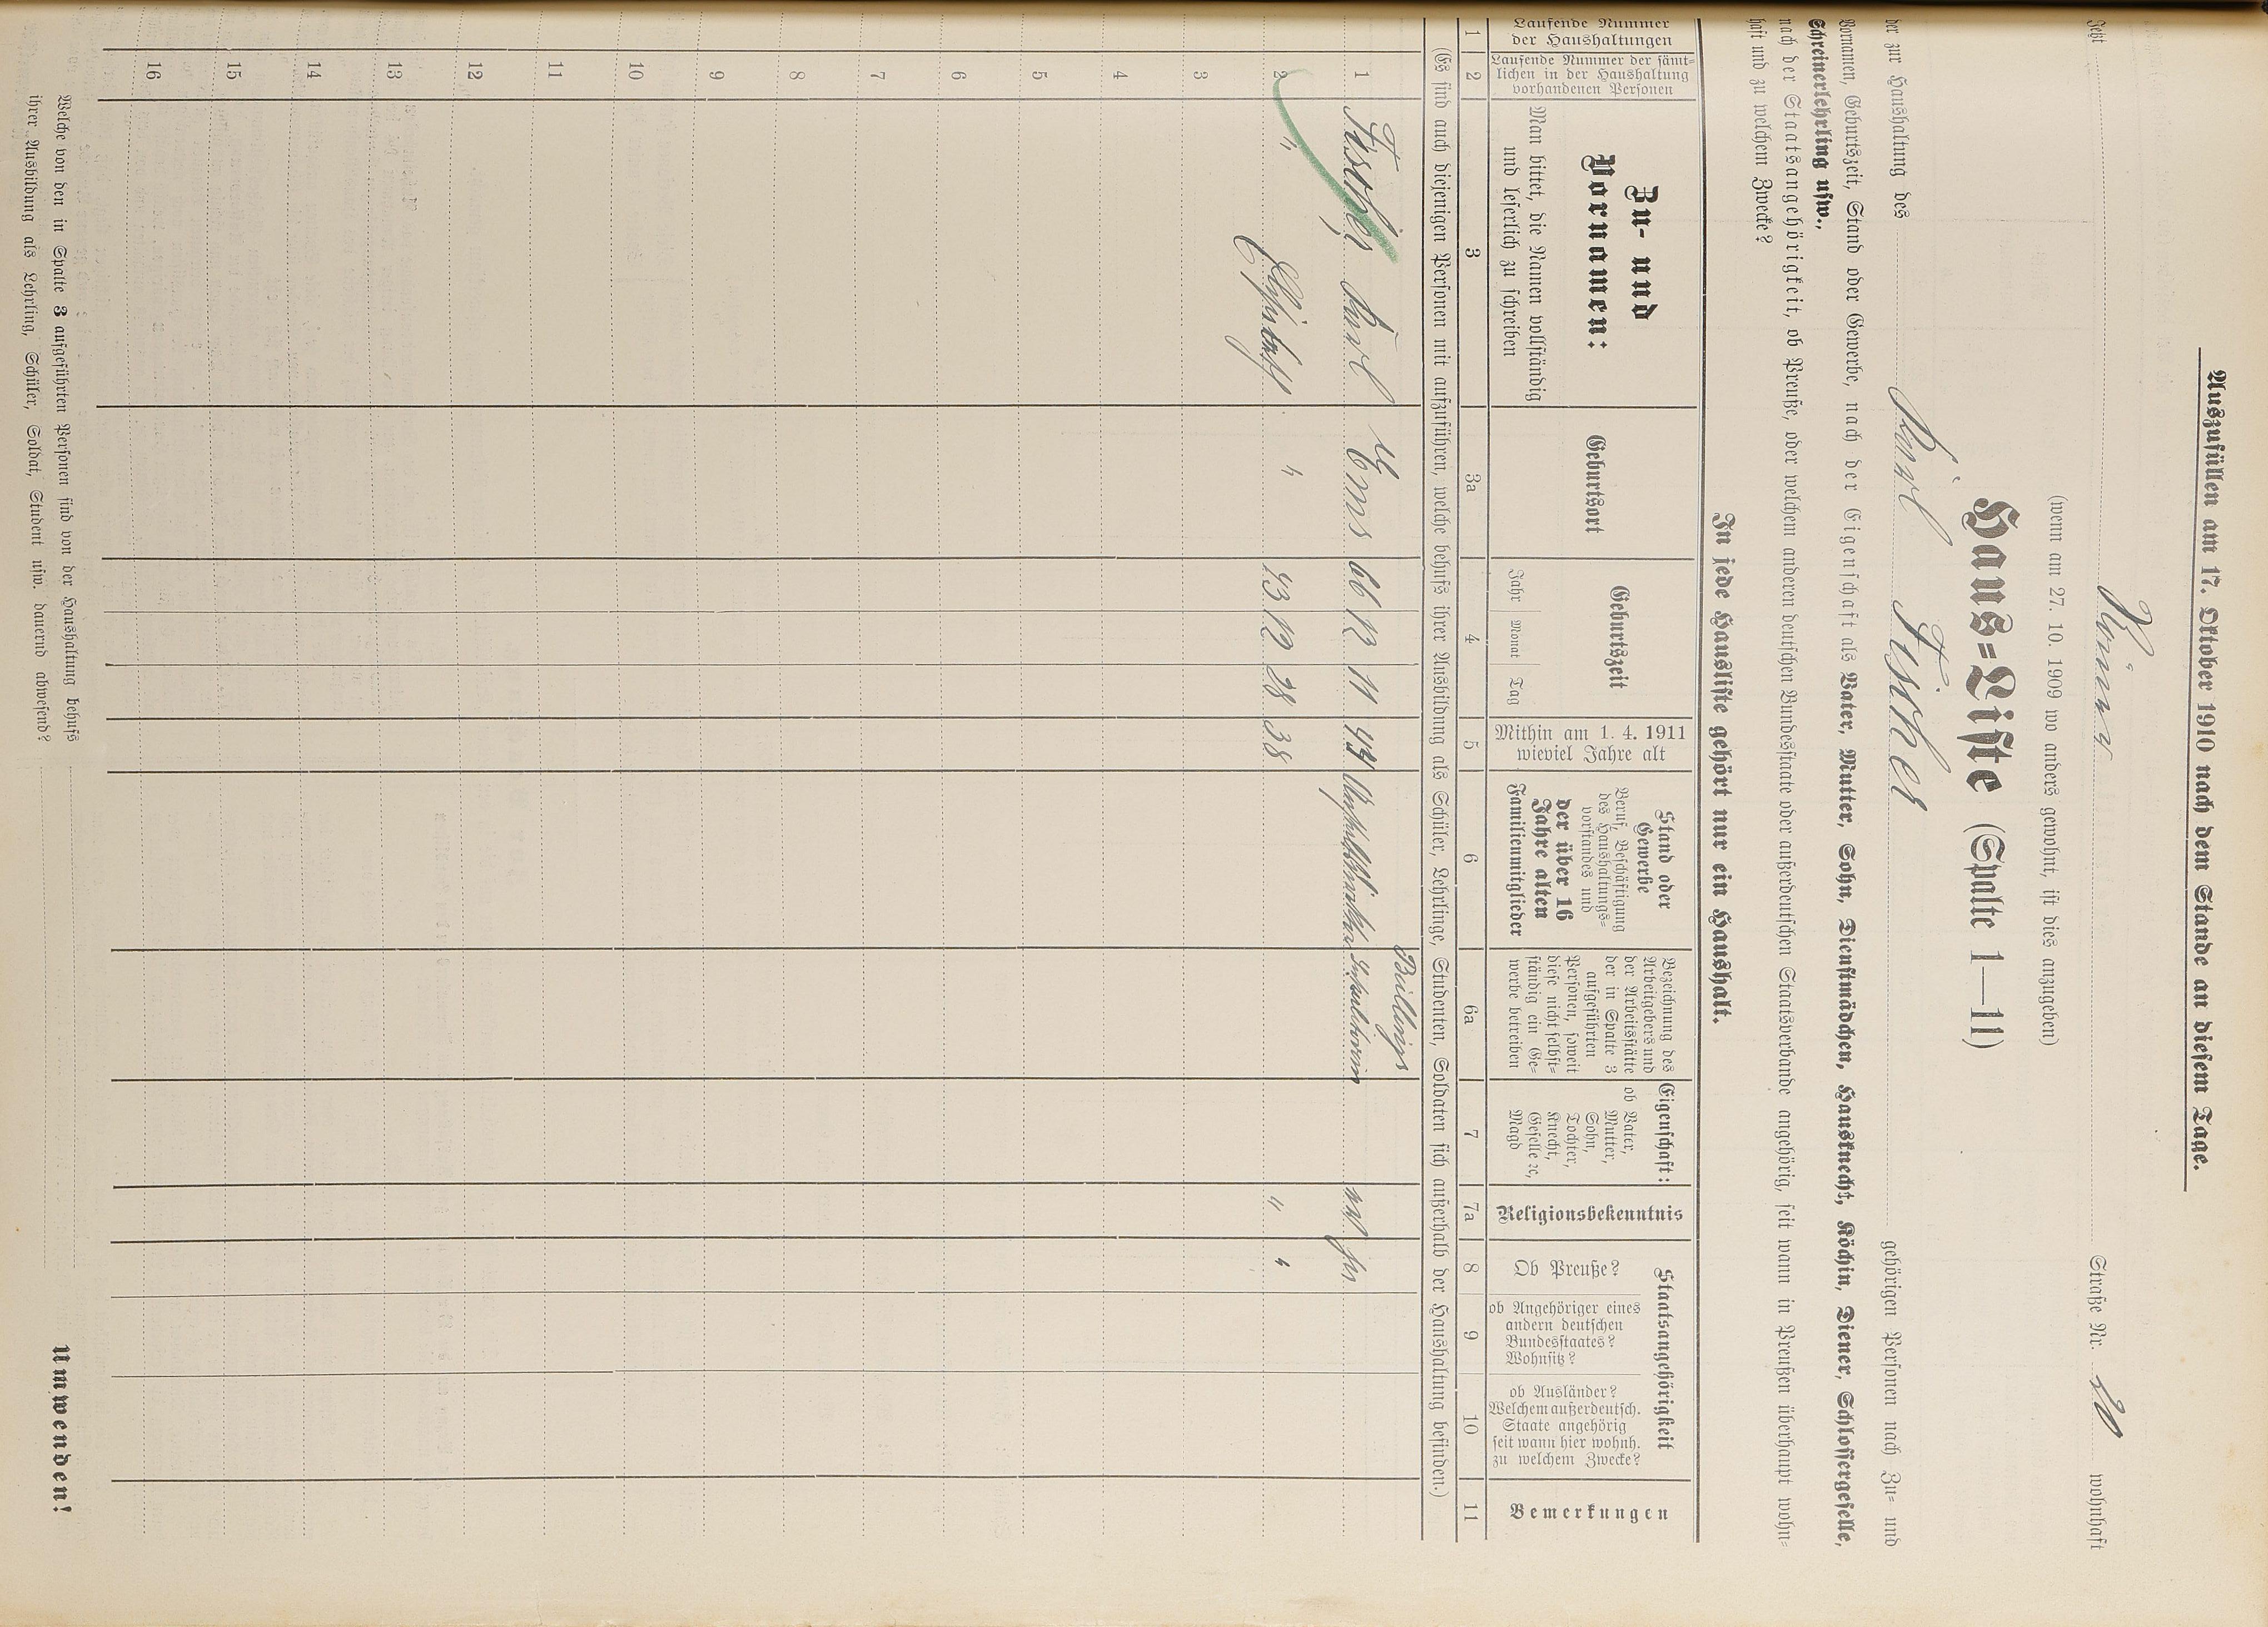 Auszufüllen am 17. Oktober 1910 nach dem Stande an diesem Tage.
Jetzt Römer Straße Nr. 20 wohnhaft
(wenn am 27. 10. 1909 wo anders gewohnt, ist dies anzugeben)
Haus-Liste (Spalte 1—11)
der zur Haushaltung des Karl Fischer gehörigen Personen nach Zu- und
Vornamen, Geburtszeit, Stand oder Gewerbe, nach der Eigenschaft als Vater, Mutter, Sohn, Dienstmädchen, Hausknecht, Köchin, Diener, Schlossergeselle,
Schreinerlehrling usw.,
nach der Staatsangehörigkeit, ob Preuße, oder welchem anderen deutschen Bundesstaate oder außerdeutschen Staatsverbande angehörig, seit wann in Preußen überhaupt wohn-
haft und zu welchem Zwecke?
In jede Hausliste gehört nur ein Haushalt.
Laufende Nummer
der Haushaltungen
Laufende Nummer der sämt-
lichen in der Haushaltung
vorhandenen Personen
Zu- und
Vornamen:
Man bittet, die Namen vollständig
und leserlich zu schreiben
Geburtsort
Geburtszeit
Jahr Monat Tag
Mithin am 1. 4. 1911
wieviel Jahre alt
Stand oder
Gewerbe
Beruf, Beschäftigung
des Haushaltungs-
vorstandes und
der über 16
Jahre alten
Familienmitglieder
Bezeichnung des
Arbeitgebers und
der Arbeitsstätte
der in Spalte 3
aufgeführten
Personen, soweit
diese nicht selbst-
ständig ein Ge-
werbe betreiben
Eigenschaft:
ob Vater,
Mutter,
Sohn,
Tochter,
Knecht,
Geselle ec,
Magd
Religionsbekenntnis
Staatsangehörigkeit
Ob Preuße?
ob Angehöriger eines
andern deutschen
Bundesstaates?
Wohnsitz?
ob Ausländer?
Welchem außerdeutsch.
Staate angehörig
seit wann hier wohnh.
zu welchem Zwecke?
Bemerkungen
1 2 3 3a 4 5 6 6a 7 7a 8 9 10 11
(Es sind auch diejenigen Personen mit aufzuführen, welche behufs ihrer Ausbildung als Schüler, Lehrlinge, Studenten, Soldaten sich außerhalb der Haushaltung befinden.)
1 Fischer Karl Ems 66 12 11 Inhalatorium
2 " Elisabeth " 12 28 38 " "
3
4
5
6
7
8
9
10
11
12
13
14
15
16
Welche von den in Spalte 3 aufgeführten Personen sind von der Haushaltung behufs
ihrer Ausbildung als Lehrling, Schüler, Soldat, Student usw. dauernd abwesend?
Umwenden!